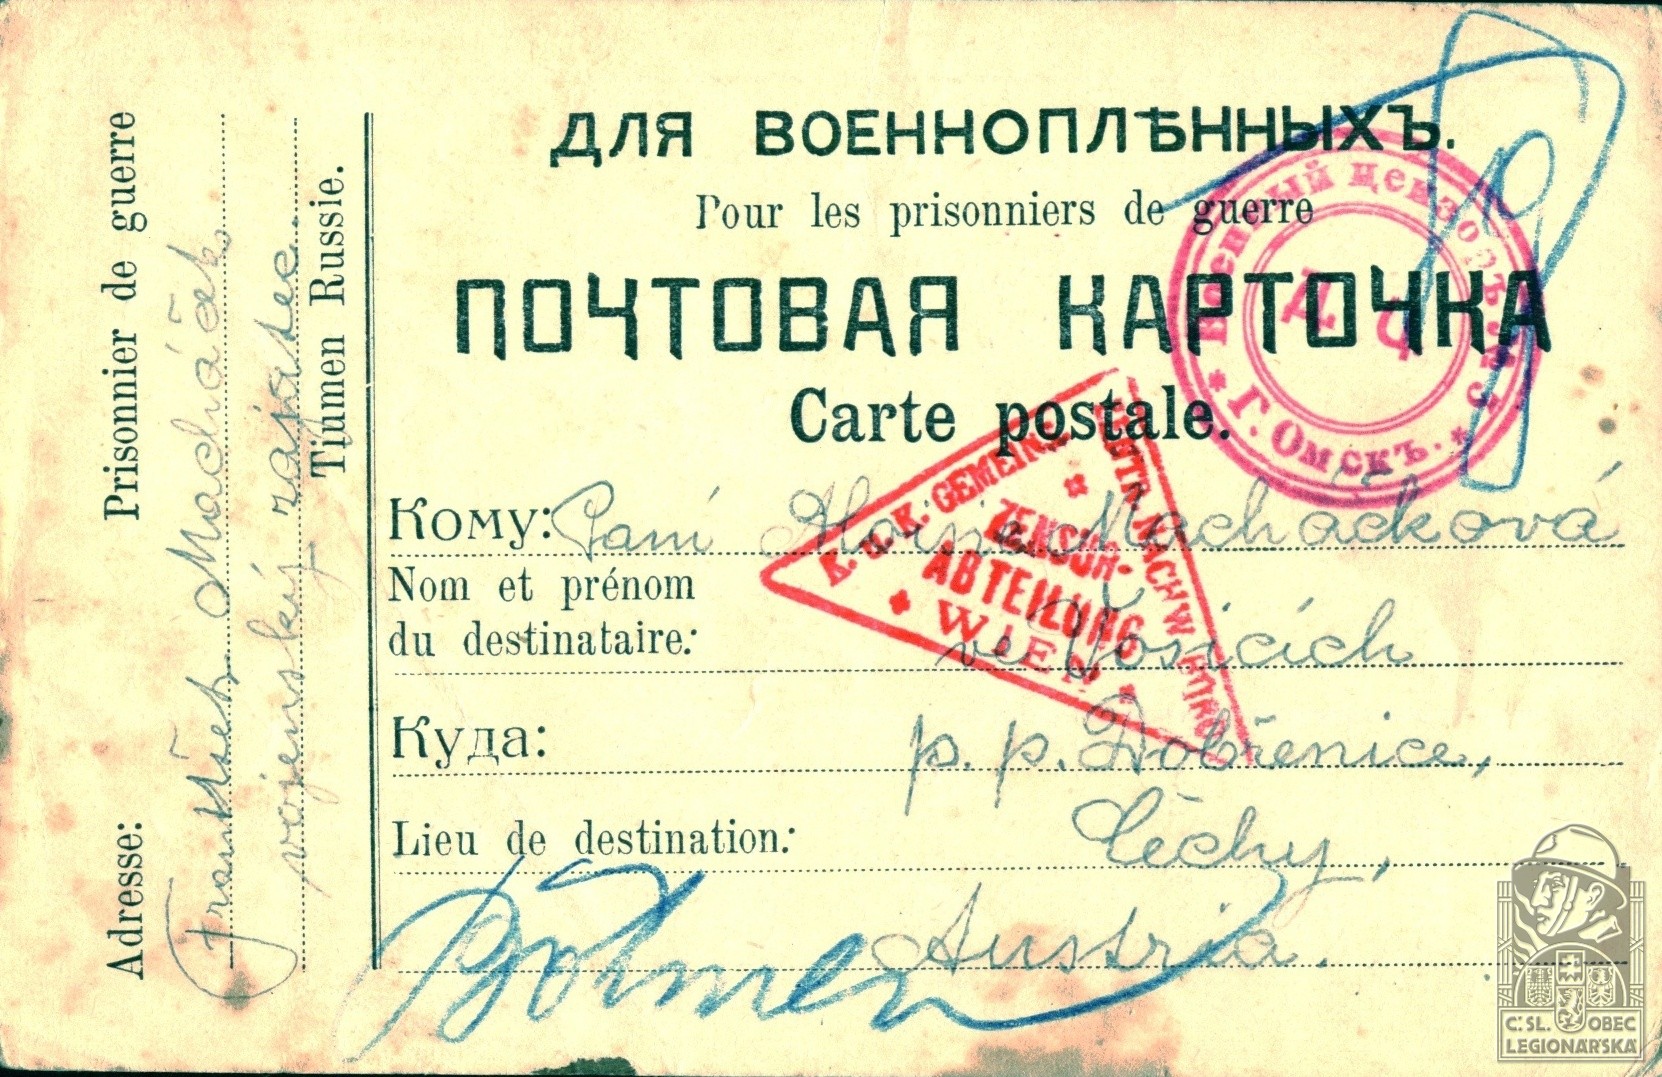 ДЛЯ ВОЕННОПЛѢННЫХЪ.
Pour les prisonniers de guerre
ПОЧТОВАЯ КАРТОЧКА
Carte postale.
Кому: Paní Aloisie Macháčková
Nom et prénom
du destinataire:
ve Vosicích
Куда: p. p. Dobřenice,
Lieu de destination: Čechy,
Austria.
Böhmen
Adresse: Prisonnier de guerre
František Macháček
vojenský zajatec
Tiumen Russie.
Военный цензоръ
Г. Омскъ.
K. u. K. GEMEINS.
ZENSUR-
ABTEILUNG
WIEN
Č: SL. OBEC
LEGIONÁŘSKÁ